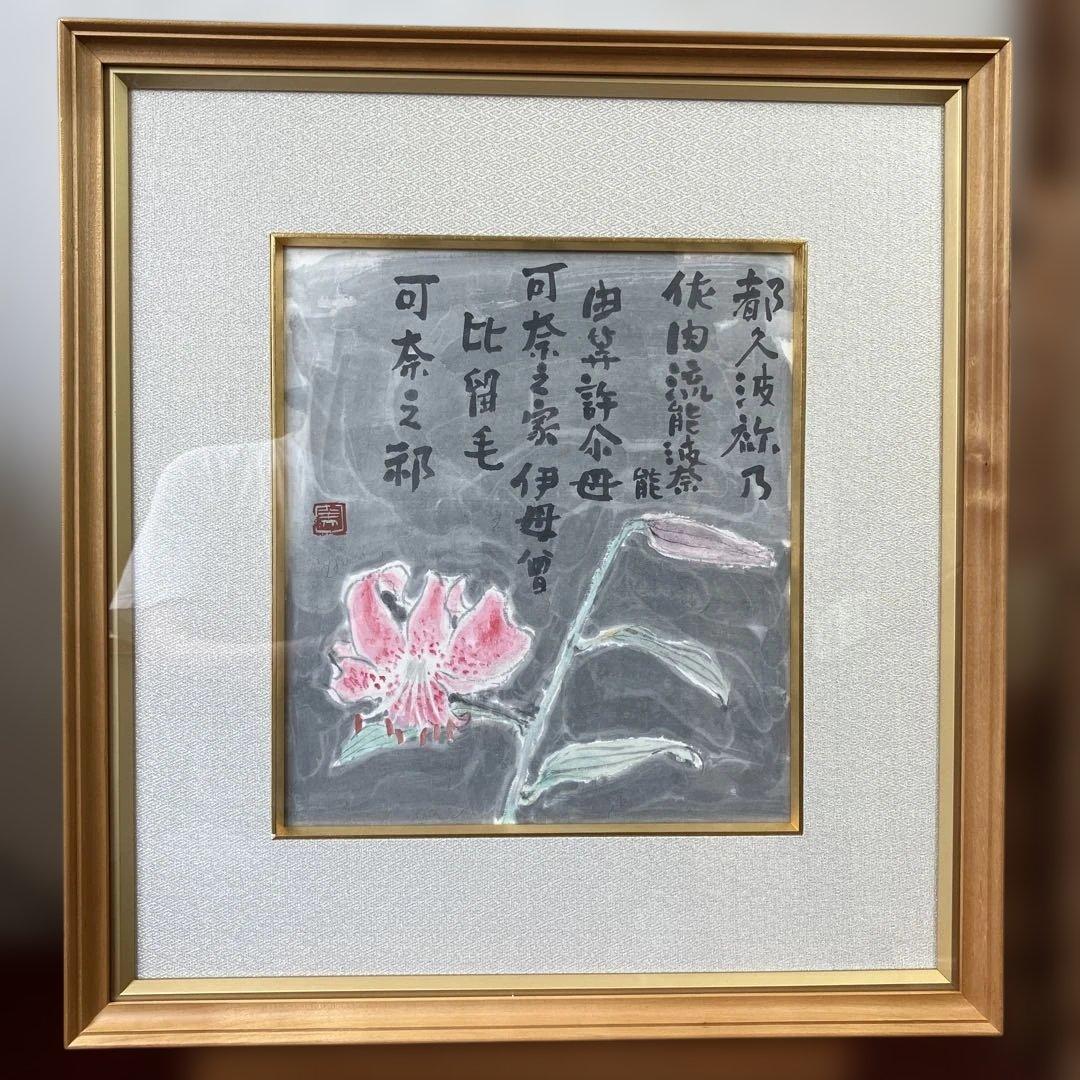 都久波祢乃
佐由流能波奈能
由等許尓母
可奈之家伊母曽
比留毛
可奈之祁